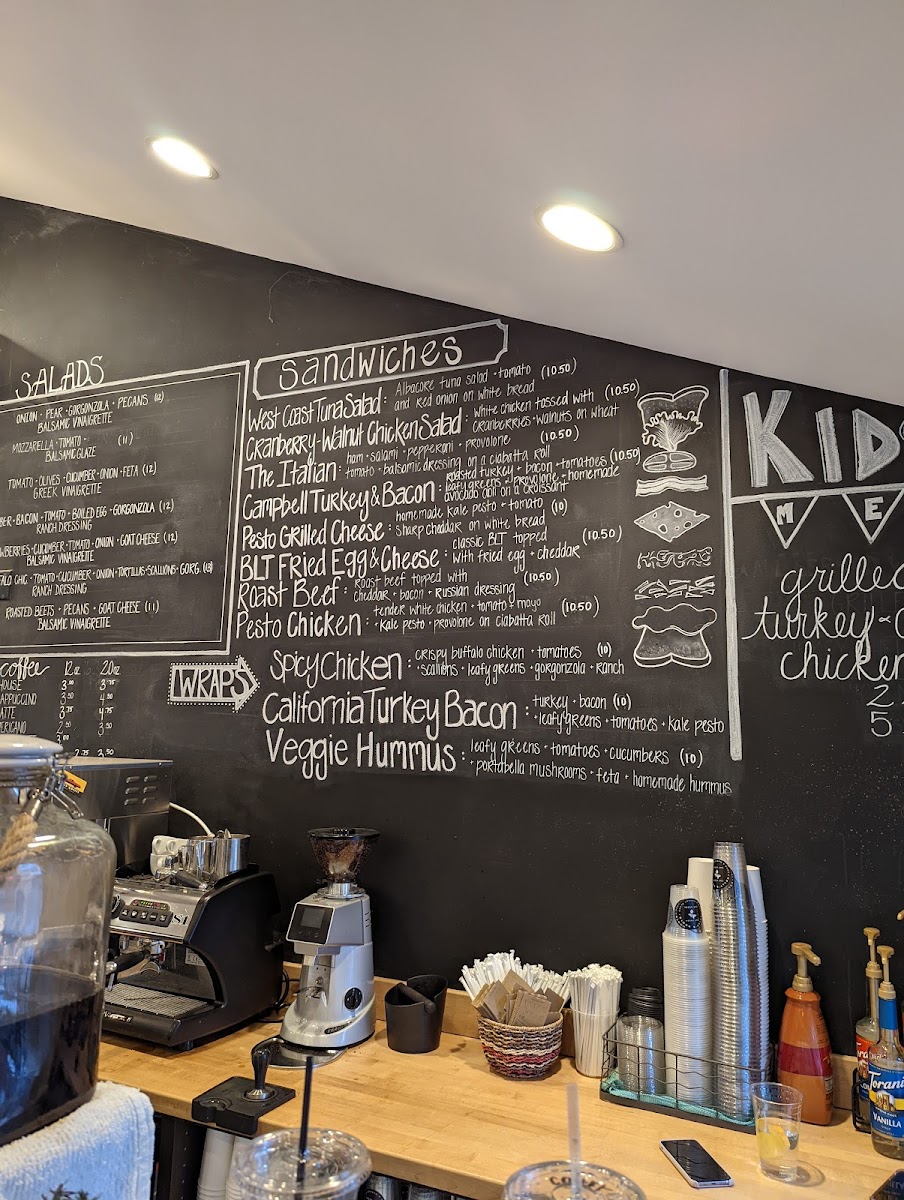 SALADS
ONION · PEAR · GORGONZOLA · PECANS (12)
BALSAMIC VINAIGRETTE
MOZZARELLA · TOMATO · (11)
BALSAMIC GLAZE
TOMATO · OLIVES · CUCUMBER · ONION · FETA (12)
GREEK VINAIGRETTE
BACON · TOMATO · BOILED EGG · GORGONZOLA (12)
RANCH DRESSING
CUCUMBER · TOMATO · ONION · GOAT CHEESE (12)
BALSAMIC VINAIGRETTE
CHIC · TOMATO · CUCUMBER · ONION · TORTILLAS · SCALLIONS · GORG.
RANCH DRESSING
ROASTED BEETS · PECANS · GOAT CHEESE (11)
BALSAMIC VINAIGRETTE
coffee 12oz 20oz
HOUSE 3.00 3.75
3.50 4.50
3.75 4.75
2.50 3.50
2.75 3.50
Sandwiches
West Coast Tuna Salad : Albacore tuna salad · tomato (10.50)
and red onion on white bread
Cranberry-Walnut Chicken Salad : white chicken tossed with (10.50)
cranberries · walnuts on wheat
The Italian : ham · salami · pepperoni · provolone (10.50)
· tomato · balsamic dressing on a ciabatta roll
Campbell Turkey & Bacon : roasted turkey · bacon · tomatoes (10.50)
leafy greens · provolone · homemade
avocado aioli on a croissant
Pesto Grilled Cheese : homemade kale pesto · tomato (10)
· sharp cheddar on white bread
BLT Fried Egg & Cheese : classic BLT topped (10.50)
with fried egg + cheddar
Roast Beef : roast beef topped with (10.50)
cheddar · bacon + russian dressing
Pesto Chicken : tender white chicken · tomato · mayo (10.50)
· kale pesto · provolone on ciabatta roll
WRAPS
Spicy Chicken : crispy buffalo chicken · tomatoes (10)
· scallions · leafy greens · gorgonzola · ranch
California Turkey Bacon : turkey · bacon (10)
· leafy greens · tomatoes · kale pesto
Veggie Hummus : leafy greens · tomatoes · cucumbers (10)
· portabella mushrooms · feta · homemade hummus
KIDS
M E
grilled
turkey
chicken
2
5
Torani
VANILLA